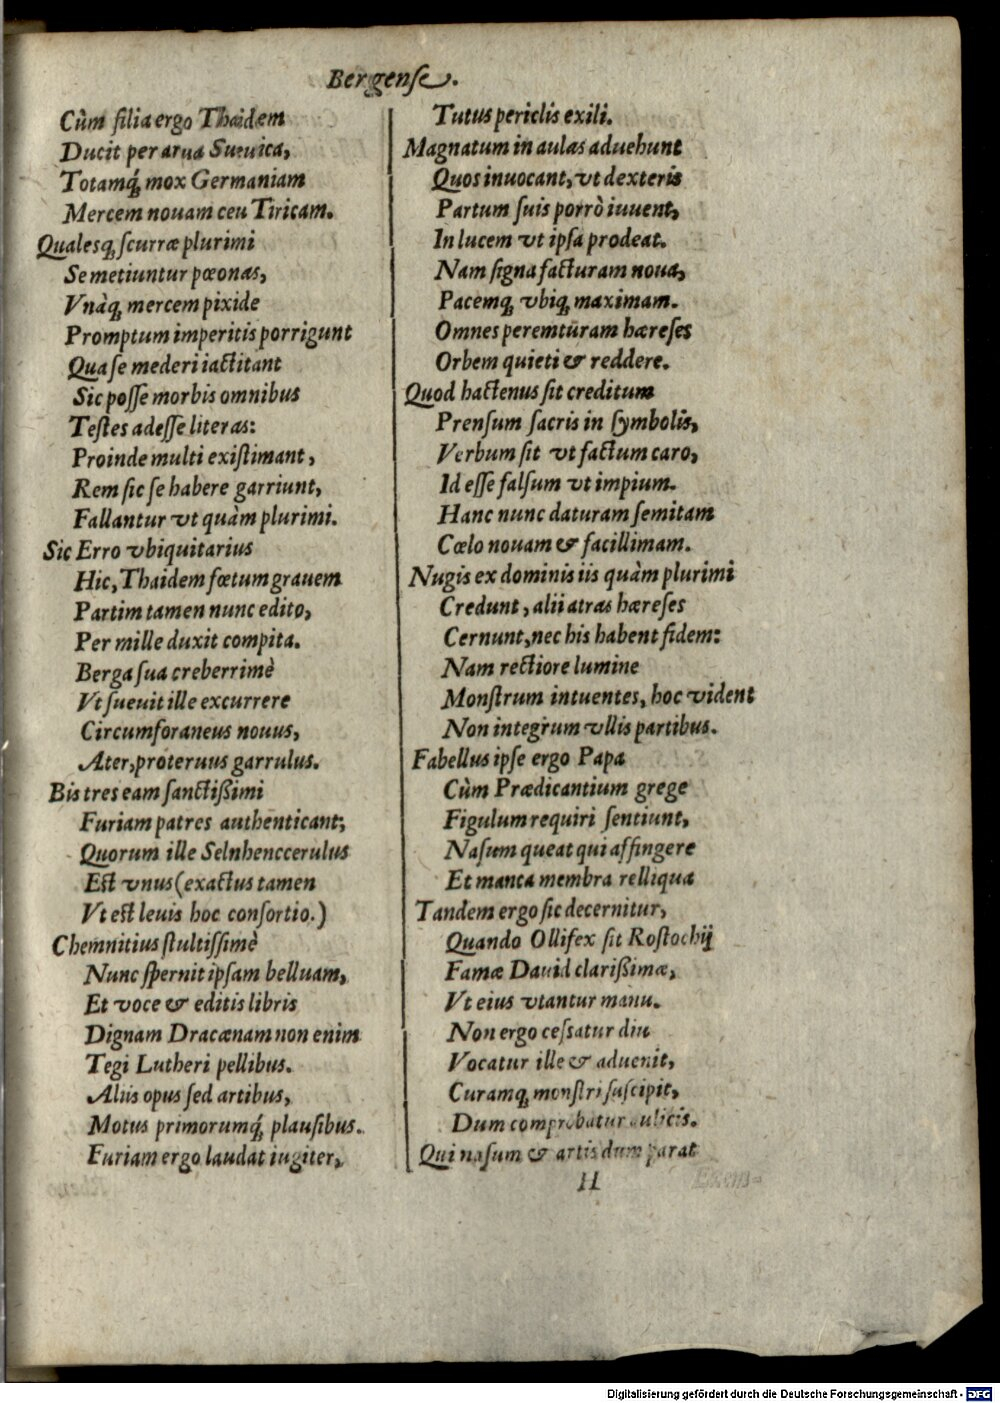 Bergense.
Cùm filia ergo Thaidem
Ducit per arua Sueuica,
Totamq́; mox Germaniam
Mercem nouam ceu Tiricam.
Qualesq; scurræ plurimi
Se metiuntur pæonas,
Vnàq; mercem pixide
Promptum imperitis porrigunt
Qua se mederi iactitant
Sic posse morbis omnibus
Testes adesse literas:
Proinde multi existimant,
Rem sic se habere garriunt,
Fallantur vt quàm plurimi.
Sic Erro vbiquitarius
Hic, Thaidem fœtum grauem
Partim tamen nunc edito,
Per mille duxit compita.
Berga sua creberrimè
Vt sueuit ille excurrere
Circumforaneus nouus,
Ater, proteruus garrulus.
Bis tres eam sanctißimi
Furiam patres authenticant;
Quorum ille Selnhenccerulus
Est vnus (exactus tamen
Vt est leuis hoc consortio.)
Chemnitius stultissimè
Nunc spernit ipsam belluam,
Et voce & editis libris
Dignam Dracænam non enim
Tegi Lutheri pellibus.
Aliis opus sed artibus,
Motus primorumq́; plausibus.
Furiam ergo laudat iugiter,
Tutus periclis exili.
Magnatum in aulas aduehunt
Quos inuocant, vt dexteris
Partum suis porrò iuuent,
In lucem vt ipsa prodeat.
Nam signa facturam noua,
Pacemq; vbiq; maximam.
Omnes peremturam hæreses
Orbem quieti & reddere.
Quod hactenus sit creditum
Prensum sacris in symbolis,
Verbum sit vt factum caro,
Id esse falsum vt impium.
Hanc nunc daturam semitam
Cœlo nouam & facillimam.
Nugis ex dominis iis quàm plurimi
Credunt, alii atras hæreses
Cernunt, nec his habent fidem:
Nam rectiore lumine
Monstrum intuentes, hoc vident
Non integrum vllis partibus.
Fabellus ipse ergo Papa
Cùm Prædicantium grege
Figulum requiri sentiunt,
Nasum queat qui affingere
Et manca membra relliqua
Tandem ergo sic decernitur,
Quando Ollifex sit Rostochij
Famæ Dauid clarißimæ,
Vt eius vtantur manu.
Non ergo cessatur diu
Vocatur ille & aduenit,
Curamq; monstri suscipit,
Dum comprobatur aulicis.
Qui nasum & artis dum parat
H
Digitalisierung gefördert durch die Deutsche Forschungsgemeinschaft - DFG